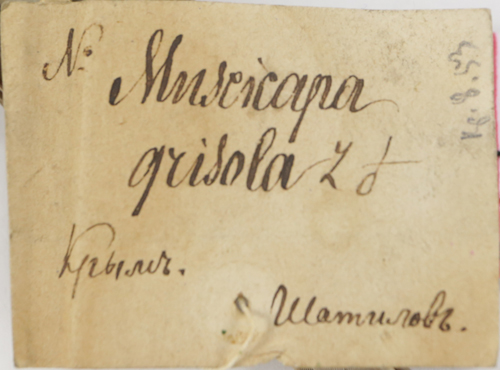 № Muscicapa
grisola
Крымъ.
Шатиловъ.
18.8.53